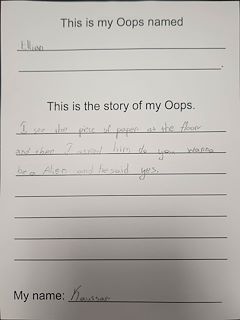 This is my Oops named
Ellian
.
This is the story of my Oops.
I see the piece of paper at the floor
and then I asked him do you wanna
be a Alien and he said yes.
My name: Kaussar